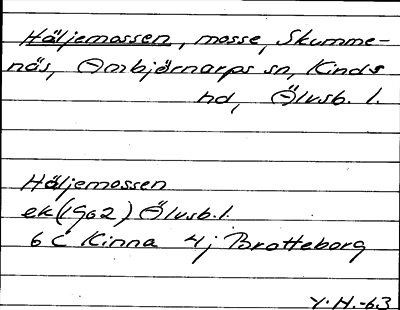 Häljemossen, mosse, Skumme-
näs, Ambjörnarps sn, Kinds
hd, Älvsb. l.
Häljemossen
ek (1962) Älvsb. l.
6 C Kinna 4j Bratteborg
Y. H. -63